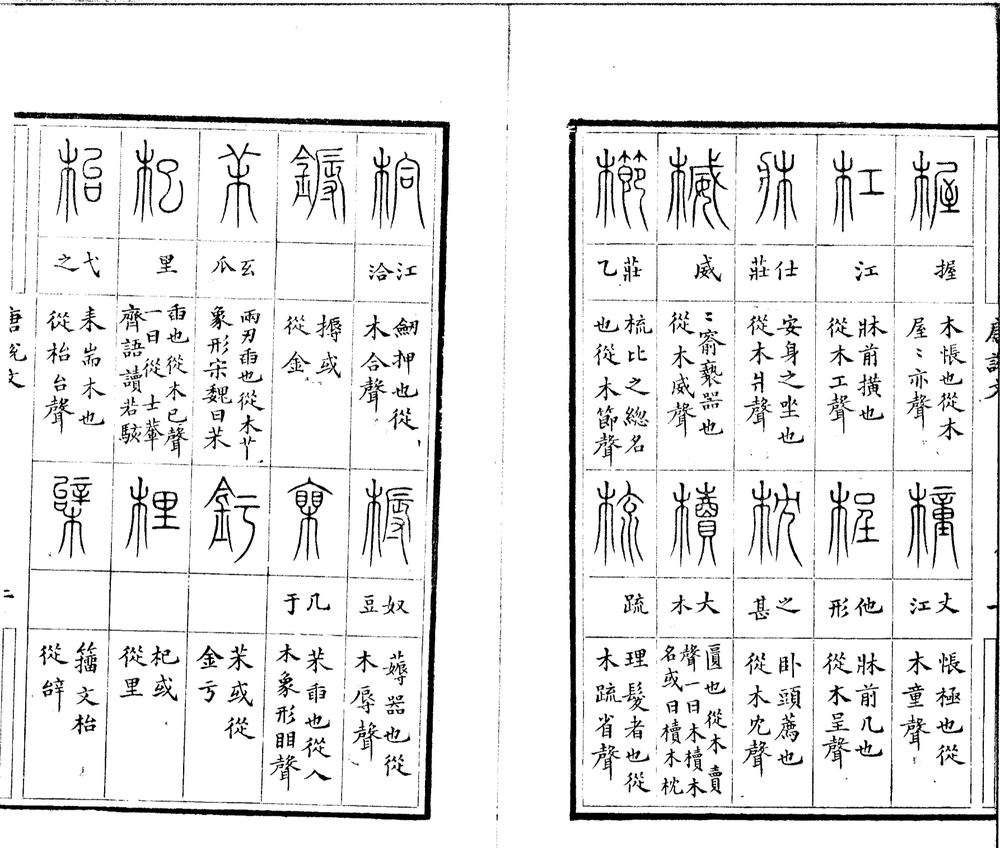 唐說文
一
楃
握
木帳也從木
屋〻亦聲
橦
丈江
帳極也從
木童聲
杠
江
牀前橫也
從木工聲
桯
他形
牀前几也
從木呈聲
牀
仕莊
安身之坐也
從木爿聲
枕
之甚
卧頭薦也
從木冘聲
楲
威
〻窬褻器也
從木威聲
櫝
大木
匵也從木賣
聲一曰木櫝木
名或曰櫝木枕
櫛
莊乙
梳比之緫名
也從木節聲
梳
疏
理髮者也從
木疏省聲
㭘
江洽
劔押也從
木合聲
槈
奴豆
薅器也從
木辱聲
鎒
搙或
從金
茉
互瓜
兩刃臿也從木
象形宋魏曰茉
釫
茉或從
金亏
几于
茉臿也從入
木象形䀠聲
杞
里
臿也從木已聲
一曰從士輂
齊語讀若駭
梩
杞或
從里
枱
弋之
耒耑木也
從枱台聲
籒文枱
從辝
唐說文
二